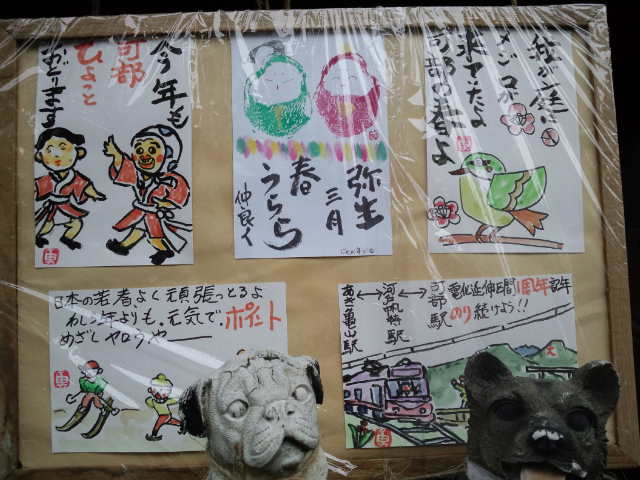 今年も
可部
ひょこと
おどります
弥生
三月
春
うらら
仲良く
我が庭に
メジロが
来てたよ
可部の春よ
日本の若者、よく頑張っとるよ
わしら年よりも、元気で、ポイント
めざしヤロウやーー
可部駅
河戸帆待川駅
あき亀山駅
電化延伸区間1周年記年
のり続けよう!!